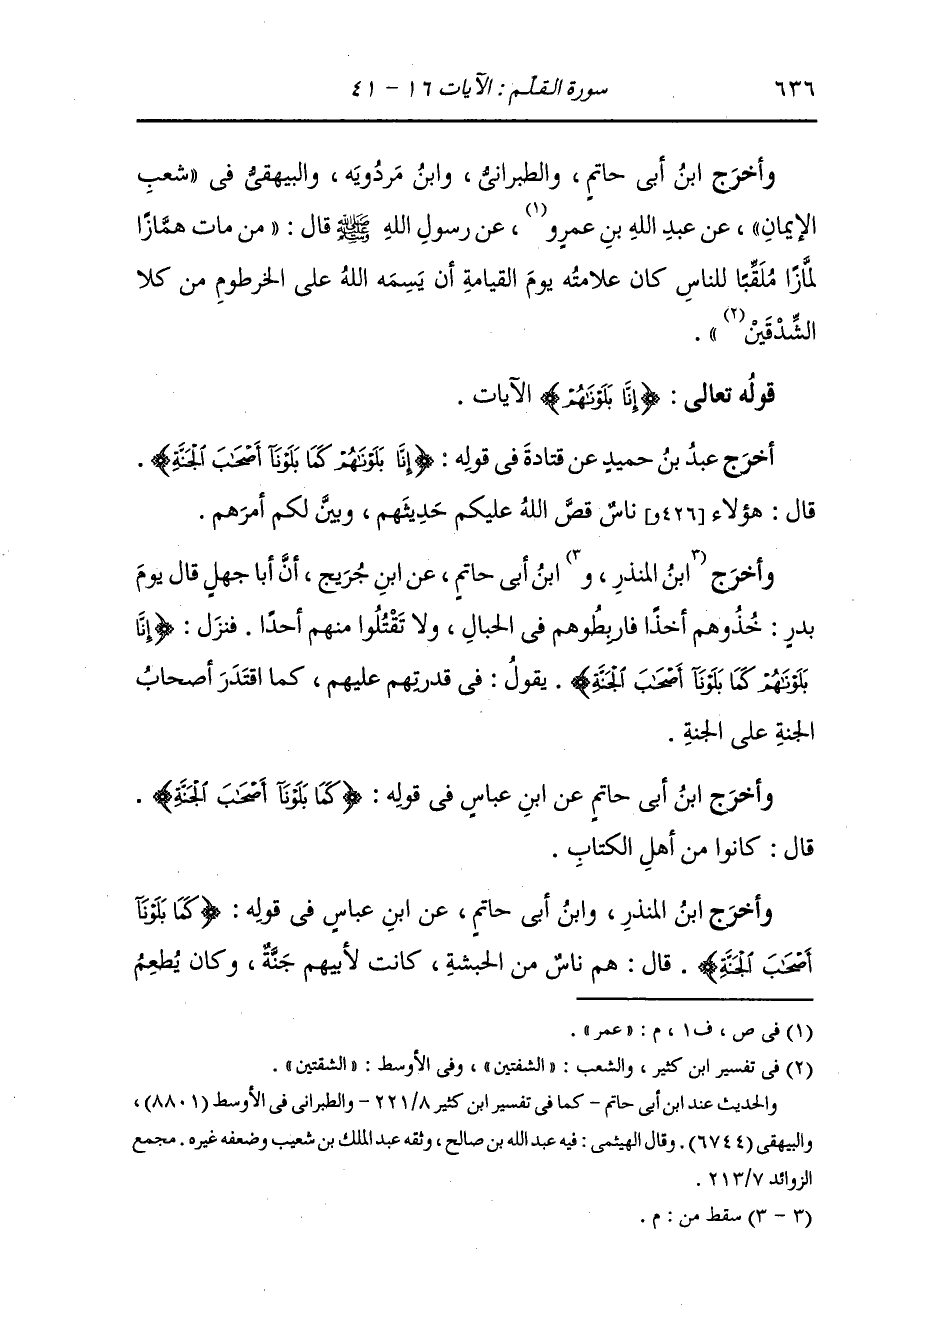 ٦٣٦ سورة القلم : الآيات ١٦ - ٤١
وأخرَج ابنُ أبى حاتمٍ ، والطبرانىُّ ، وابنُ مَردُويَه ، والبيهقىُّ فى «شعبِ
الإيمانِ» ، عن عبدِ اللهِ بنِ عمرٍو(١) ، عن رسولِ اللهِ ﷺ قال : « من مات همَّازًا
لمَّازًا مُلَقِّبًا للناسِ كان علامتُه يومَ القيامةِ أن يَسِمَه اللهُ على الخرطومِ من كلا
الشِّدْقَيْنْ(٢) » .
قولُه تعالى : ﴿إِنَّا بَلَوْنَٰهُمْ﴾ الآيات .
أخرَج عبدُ بنُ حميدٍ عن قتادةَ فى قولِه : ﴿إِنَّا بَلَوْنَٰهُمْ كَمَا بَلَوْنَآ أَصْحَٰبَ ٱلْجَنَّةِ﴾ .
قال : هؤلاء [٤٢٦و] ناسٌ قصَّ اللهُ عليكم حَدِيثَهم ، وبينَّ لكم أمرَهم .
وأخرَج (٣ابنُ المنذرِ ، و٣) ابنُ أبى حاتمٍ ، عن ابنِ جُرَيجٍ ، أنَّ أبا جهلٍ قال يومَ
بدرٍ : خُذُوهم أخذًا فاربِطُوهم فى الحبالِ ، ولا تَقْتُلُوا منهم أحدًا . فنزَل : ﴿إِنَّا
بَلَوْنَٰهُمْ كَمَا بَلَوْنَآ أَصْحَٰبَ ٱلْجَنَّةِ﴾ . يقولُ : فى قدرتِهم عليهم ، كما اقتَدَرَ أصحابُ
الجنةِ على الجنةِ .
وأخرَج ابنُ أبى حاتمٍ عن ابنِ عباسٍ فى قولِه : ﴿كَمَا بَلَوْنَآ أَصْحَٰبَ ٱلْجَنَّةِ﴾ .
قال : كانوا من أهلِ الكتابِ .
وأخرَج ابنُ المنذرِ ، وابنُ أبى حاتمٍ ، عن ابنِ عباسٍ فى قولِه : ﴿كَمَا بَلَوْنَآ
أَصْحَٰبَ ٱلْجَنَّةِ﴾ . قال : هم ناسٌ من الحبشةِ ، كانت لأبيهم جَنَّةٌ ، وكان يُطعِمُ
(١) فى ص ، ف١ ، م : «عمر» .
(٢) فى تفسير ابن كثير ، والشعب : «الشفتين» ، وفى الأوسط : «الشقتين» .
والحديث عند ابن أبى حاتم - كما فى تفسير ابن كثير ٢٢١/٨ - والطبرانى فى الأوسط (٨٨٠١) ،
والبيهقى (٦٧٤٤) . وقال الهيثمى : فيه عبد الله بن صالح ، وثقه عبد الملك بن شعيب وضعفه غيره . مجمع
الزوائد ٢١٣/٧ .
(٣ - ٣) سقط من : م .